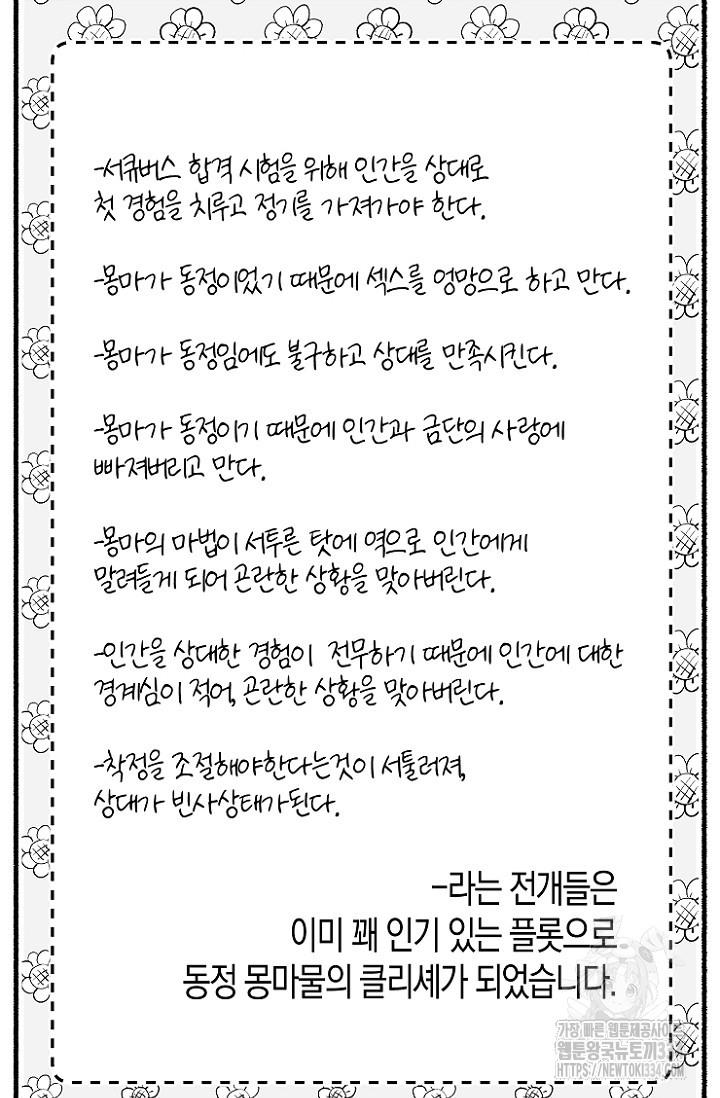 -서큐버스 합격 시험을 위해 인간을 상대로
첫 경험을 치루고 정기를 가져가야 한다.
-몽마가 동정이었기 때문에 섹스를 엉망으로 하고 만다.
-몽마가 동정임에도 불구하고 상대를 만족시킨다.
-몽마가 동정이기 때문에 인간과 금단의 사랑에
빠져버리고 만다.
-몽마의 마법이 서투른 탓에 역으로 인간에게
말려들게 되어 곤란한 상황을 맞아버린다.
-인간을 상대한 경험이 전무하기 때문에 인간에 대한
경계심이 적어, 곤란한 상황을 맞아버린다.
-착정을 조절해야한다는것이 서툴러져,
상대가 빈사상태가된다.
-라는 전개들은
이미 꽤 인기 있는 플롯으로
동정 몽마물의 클리셰가 되었습니다.
가장 빠른 웹툰제공사이트
웹툰왕국뉴토끼33
HTTPS://NEWTOKI33